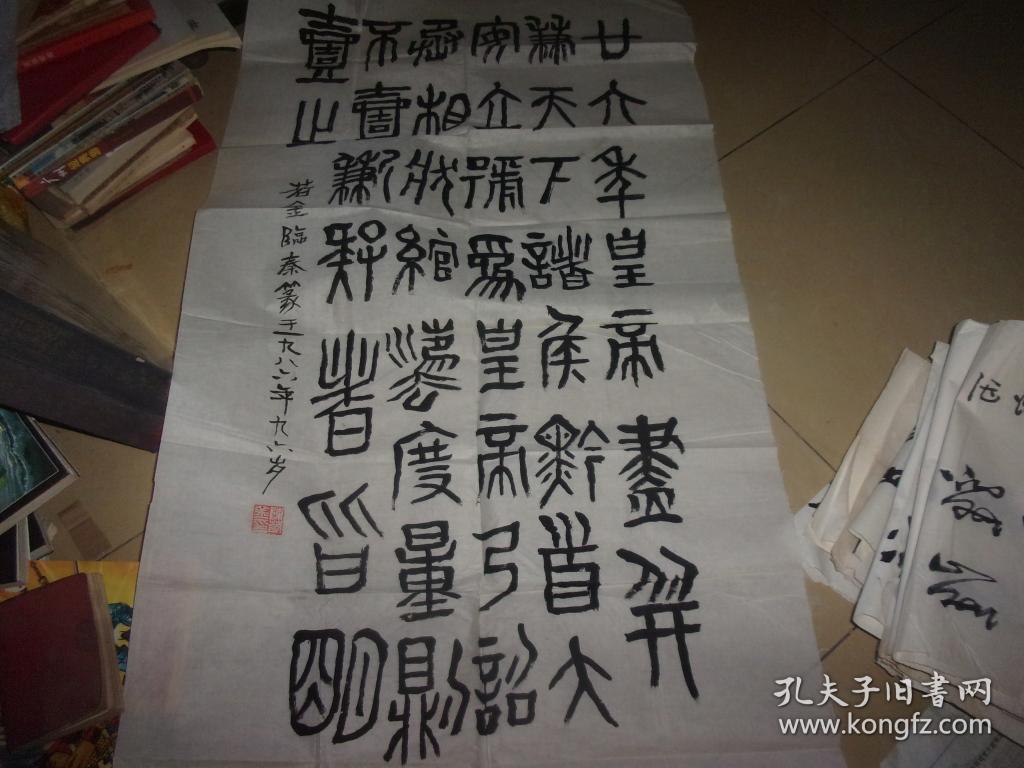 廿六年皇帝盡并
兼天下諸侯黔首大
安立號爲皇帝乃詔
丞相狀綰灋度量則
不壹歉疑者皆明
壹之
金臨秦篆 九八六年九六岁
孔夫子旧书网
www.kongfz.com